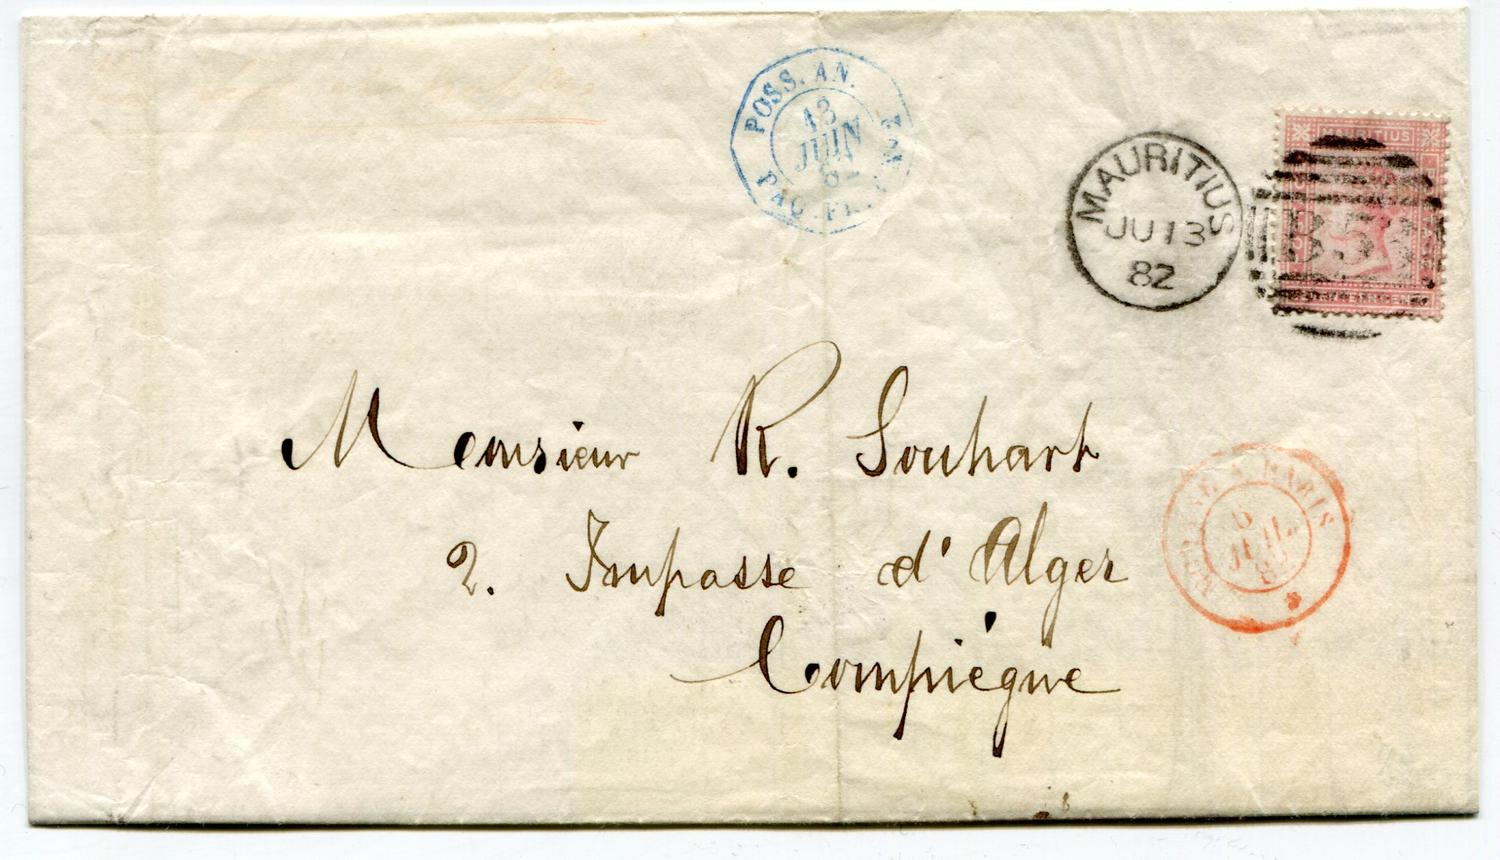 POSS. AN.
13
JUIN
82
PAQ. FR.
MAURITIUS
JU 13
82
MAURITIUS
B53
Monsieur R. Souhart
2. Impasse d'Alger
Compiègne
A PARIS
6
JUIL.
82